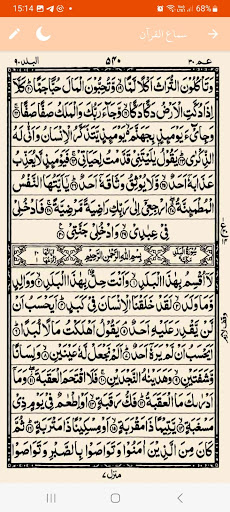 15:14 68%
سماع القرآن
عـم ٣٠ ٥٣٠ البلد ٩٠
وَتَاْكُلُوْنَ التُّرَاثَ اَكْلًا لَّمًّا ۙ وَّتُحِبُّوْنَ الْمَالَ حُبًّا جَمًّا ؕ كَلَّاۤ
اِذَا دُكَّتِ الْاَرْضُ دَكًّا دَكًّا ۙ وَّجَآءَ رَبُّكَ وَالْمَلَكُ صَفًّا صَفًّا ۚ
وَجِایْٓءَ يَوْمَئِذٍۭ بِجَهَنَّمَ ۙ يَوْمَئِذٍ يَّتَذَكَّرُ الْاِنْسَانُ وَاَنّٰى لَهُ
الذِّكْرٰى ؕ يَقُوْلُ يٰلَيْتَنِىْ قَدَّمْتُ لِحَيَاتِىْ ۚ فَيَوْمَئِذٍ لَّا يُعَذِّبُ
عَذَابَهٗۤ اَحَدٌ ۙ وَّلَا يُوْثِقُ وَثَاقَهٗۤ اَحَدٌ ؕ يٰۤاَيَّتُهَا النَّفْسُ
الْمُطْمَئِنَّةُ ۖ ارْجِعِىْۤ اِلٰى رَبِّكِ رَاضِيَةً مَّرْضِيَّةً ۚ فَادْخُلِىْ
فِىْ عِبٰدِىْ ۙ وَادْخُلِىْ جَنَّتِىْ
بِسْمِ اللّٰهِ الرَّحْمٰنِ الرَّحِيْمِ
لَاۤ اُقْسِمُ بِهٰذَا الْبَلَدِ ۙ وَاَنْتَ حِلٌّۢ بِهٰذَا الْبَلَدِ ۙ وَوَالِدٍ
وَّمَا وَلَدَ ۙ لَقَدْ خَلَقْنَا الْاِنْسَانَ فِىْ كَبَدٍ ؕ اَيَحْسَبُ اَنْ
لَّنْ يَّقْدِرَ عَلَيْهِ اَحَدٌ ۘ يَقُوْلُ اَهْلَكْتُ مَالًا لُّبَدًا ؕ اَيَحْسَبُ
اَنْ لَّمْ يَرَهٗۤ اَحَدٌ ؕ اَلَمْ نَجْعَلْ لَّهٗ عَيْنَيْنِ ۙ وَلِسَانًا
وَّشَفَتَيْنِ ۙ وَهَدَيْنٰهُ النَّجْدَيْنِ ۚ فَلَا اقْتَحَمَ الْعَقَبَةَ ۖ وَمَاۤ
اَدْرٰىكَ مَا الْعَقَبَةُ ؕ فَكُّ رَقَبَةٍ ۙ اَوْ اِطْعٰمٌ فِىْ يَوْمٍ ذِىْ
مَسْغَبَةٍ ۙ يَّتِيْمًا ذَا مَقْرَبَةٍ ۙ اَوْ مِسْكِيْنًا ذَا مَتْرَبَةٍ ؕ ثُمَّ
كَانَ مِنَ الَّذِيْنَ اٰمَنُوْا وَتَوَاصَوْا بِالصَّبْرِ وَتَوَاصَوْا
منزل ٧